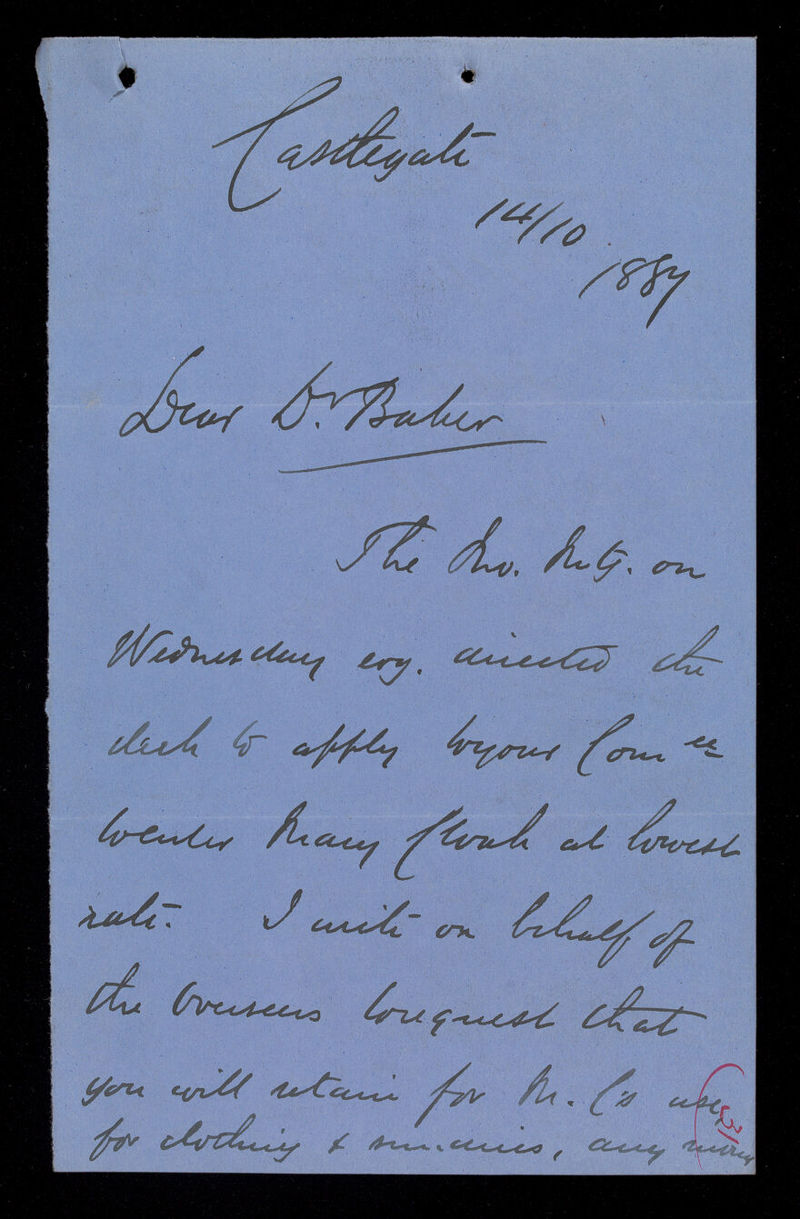 Castlegate
14/10
1887
Dear Dr. Baker
The Mo. Mtg. on
Wednesday evg. directed the
clerk to apply to your Com ee
to enter Mary Cloak at lowest
rate. I write on behalf of
the Overseers to request that
you will retain for M. C's use,
for clothing & sundries, any money
31